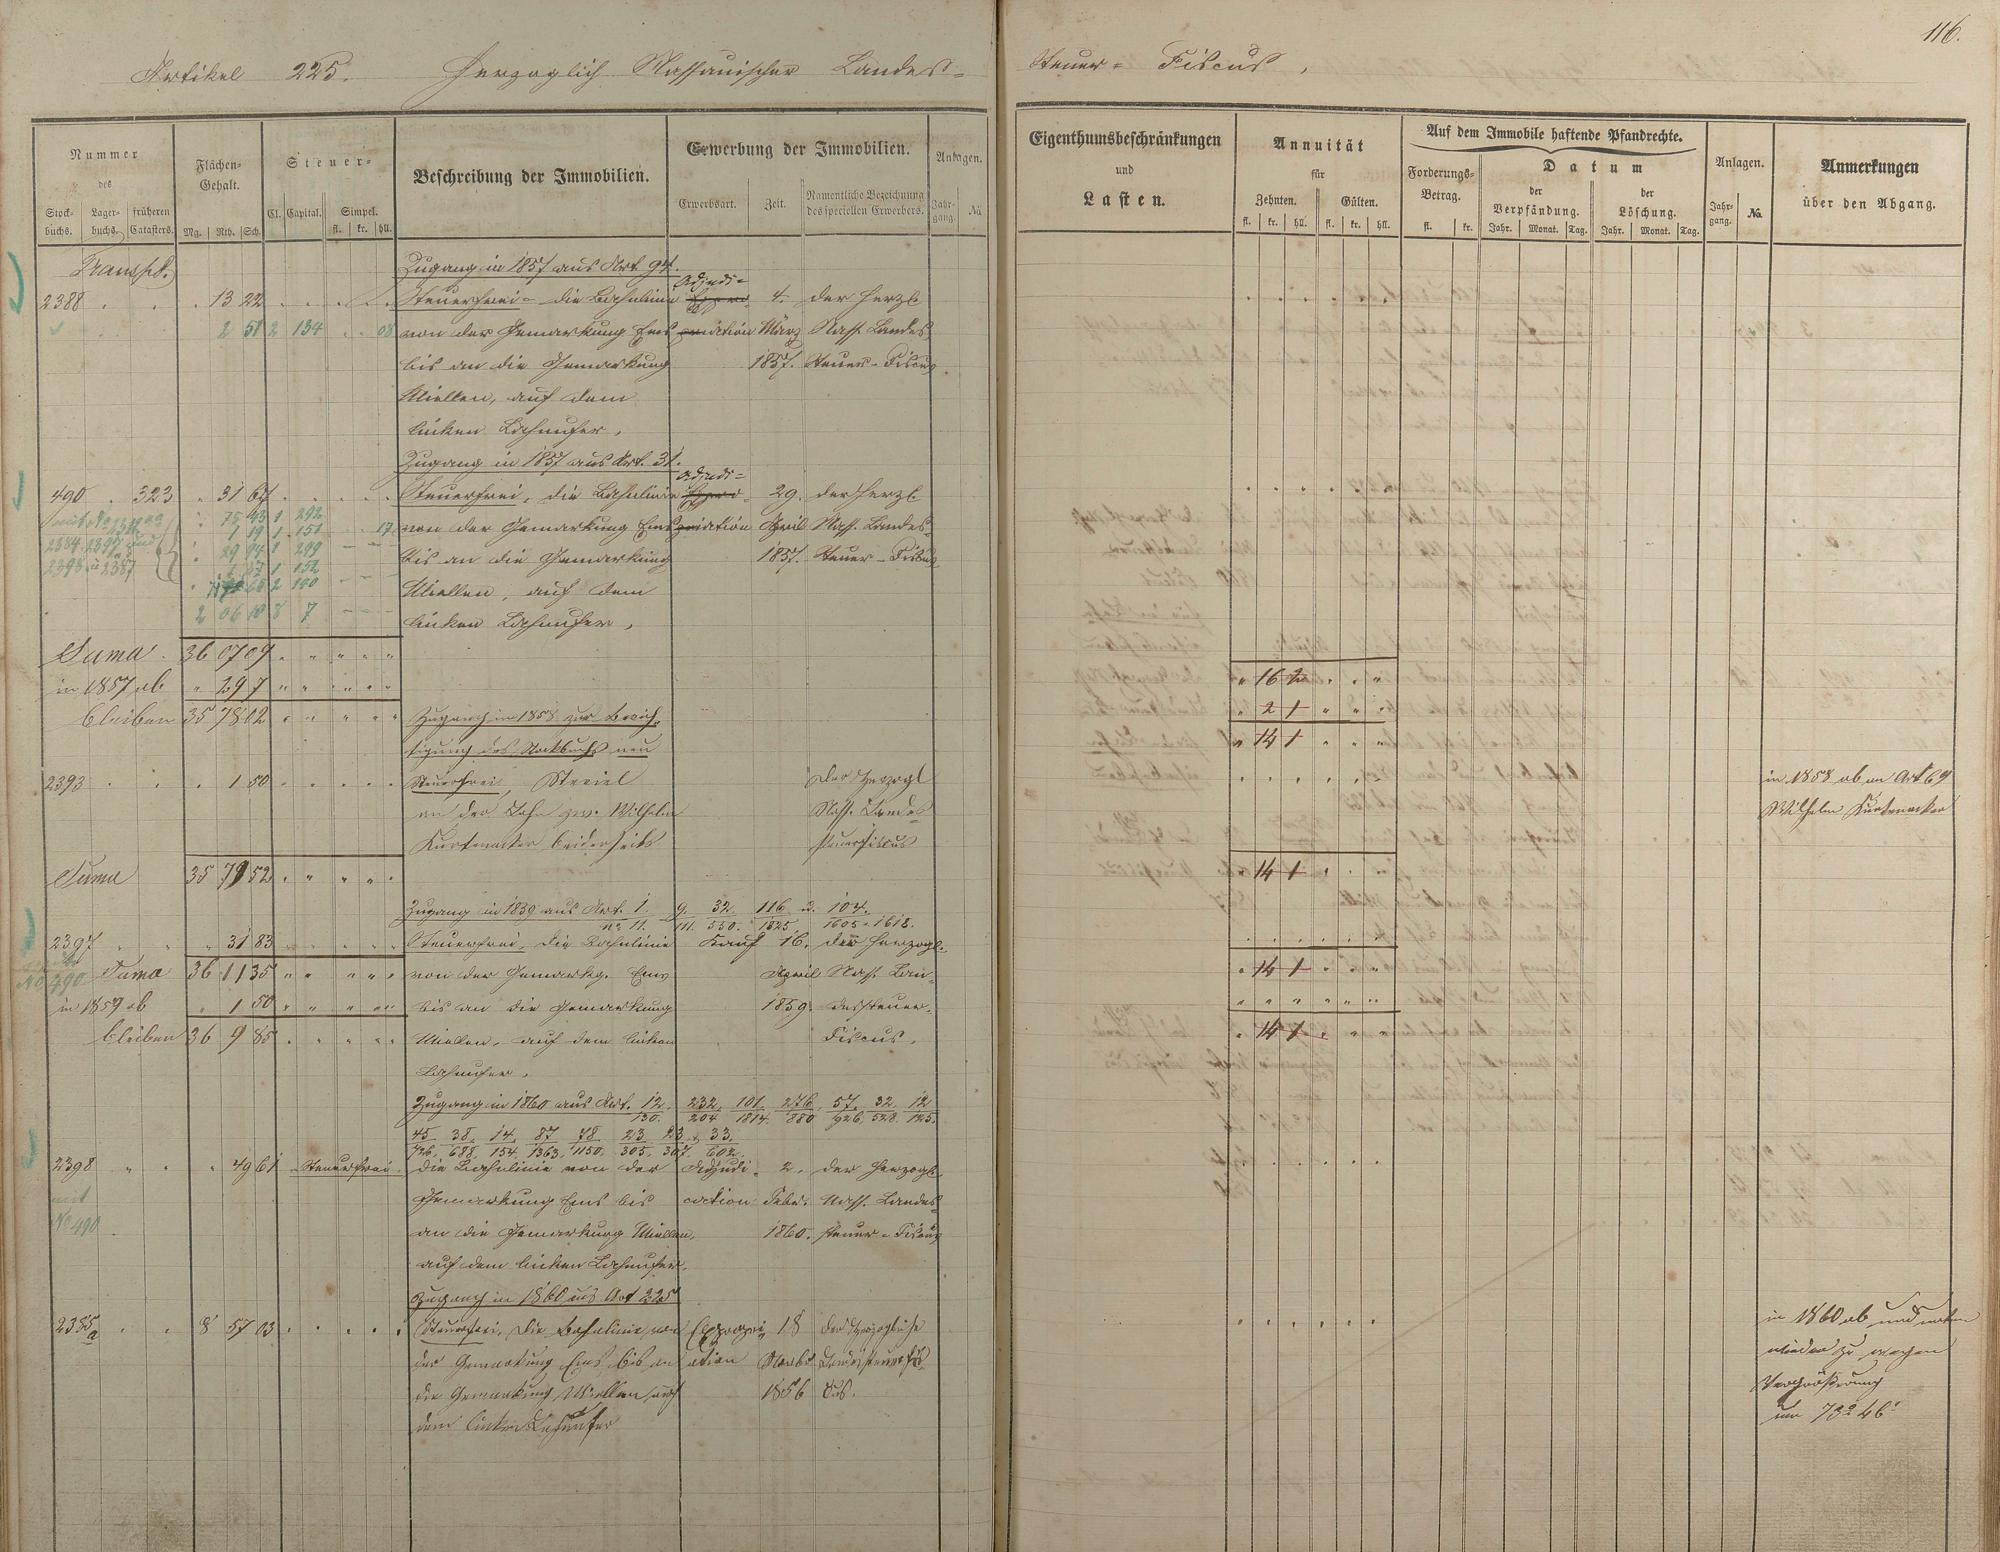 116.
Artikel 225. Herzoglich Nassauischer Landes-
Steuer- Fiscus,
Nummer
des
Stock-
buchs.
Lager-
buchs.
früheren
Catasters.
Flächen-
Gehalt.
Mg. Rth. Sch.
Steuer-
Cl. Capital. Simpel.
fl. kr. hll.
Beschreibung der Immobilien.
Erwerbung der Immobilien.
Erwerbsart. Zeit.
Namentliche Bezeichnung
des speciellen Erwerbers.
Anlagen.
Jahr-
gang. No.
Eigenthumsbeschränkungen
und
Lasten.
Annuität
für
Zehnten. Gülten.
fl. kr. hll. fl. kr. hll.
Auf dem Immobile haftende Pfandrechte.
Forderungs-
Betrag.
fl. kr.
Datum
der
Verpfändung.
Jahr. Monat. Tag.
der
Löschung.
Jahr. Monat. Tag.
Anlagen.
Jahr-
gang. No.
Anmerkungen
über den Abgang.
Transpt.
Zugang in 1857 aus Art. 94.
2388 " " " 13 22 " " " " " Steuerfrei- die Bahnlinie Adjudi- 4. der Herzl.
2 51 2 134 " " 08 von der Gemarkung Ems cation März Nass. Landes
bis an die Gemarkung 1857. Steuer- Fiscus
Miellen, auf dem
linken Lahnufer,
Zugang in 1857 aus Art. 31.
490 " 323 " 31 64 " " " " " Steuerfrei, die Bahnlinie Adjudi- 29. der Herzl.
75 43 1 292
1 19 1 151 17 von der Gemarkung Ems cation April Nass. Landes-
2384. 2397 und 29 94 1 299 bis an die Gemarkung 1857. Steuer- Fiscus
2398 u 2387 1 152
65 2 140 Miellen, auf dem
2 06 10 8 7 linken Lahnufer,
Suma. 36 07 09 " " " " "
" 16 2 " " "
in 1857 ab " 29 7 " " " " "
" 2 1 " " "
bleiben 35 78 02 " " " " " Zugang in 1858 zur Berich-
tigung des Stockbuchs neu
" 14 1 " " "
2393 " " " 1 50 " " " " " Steuerfrei, der Herzogl
in 1858 ab an Art 69
an der Lahn zw. Wilhelm Nass. Landes-
Wilhelm Kurtenacker
Kurtenacker beiderseits steuerfiscus
Suma 35 79 52 " " " " "
" 14 1 " " "
Zugang in 1859 aus Art. 1. 9. 32. 116. u. 104.
No 11. 111. 530. 1825. 1605 - 1618.
2397 " " " 31 83 " " " " " Steuerfrei, die Bahnlinie Kauf 16. der Herzogl.
No 490 Suma 36 11 35 " " " " " von der Gemarkg. Ems April Nass. Lan-
" 14 1 " " "
in 1859 ab " 1 50 " " " " " bis an die Gemarkung 1859. dessteuer-
bleiben 36 9 85 " " " " " Miellen, auf dem linken Fiscus.
" 14 1 " " "
Lahnufer,
Zugang in 1860 aus Art. 12. 232. 101. 276. 57. 32. 12
130. 204. 1814. 880. 926. 528. 125.
45. 38. 14. 87. 78. 23. 23. & 33.
726. 688. 154. 1363. 1150. 305. 307. 602.
2398 " " " 49 61 " Steuerfrei. die Bahnlinie von der Adjudi- 2. der Herzogl.
mit
No 490
Gemarkung Ems bis cation Febr. Nass. Landes-
an die Gemarkung Miellen, 1860. steuer- Fiscus
auf dem linken Lahnufer.
Zugang in 1860 aus Art 225
2385a " " 8 57 03 " " " " " Steuerfrei, die Bahnlinie von Expropri- 18 der Herzogliche
in 1860 ab und unten
der Gemarkung Ems bis an ation Novbr Landessteuerfis-
wieder zu wegen
die Gemarkung Miellen, auf 1856 cus.
Vergrößerung
dem linken Lahnufer
um 73° 46'